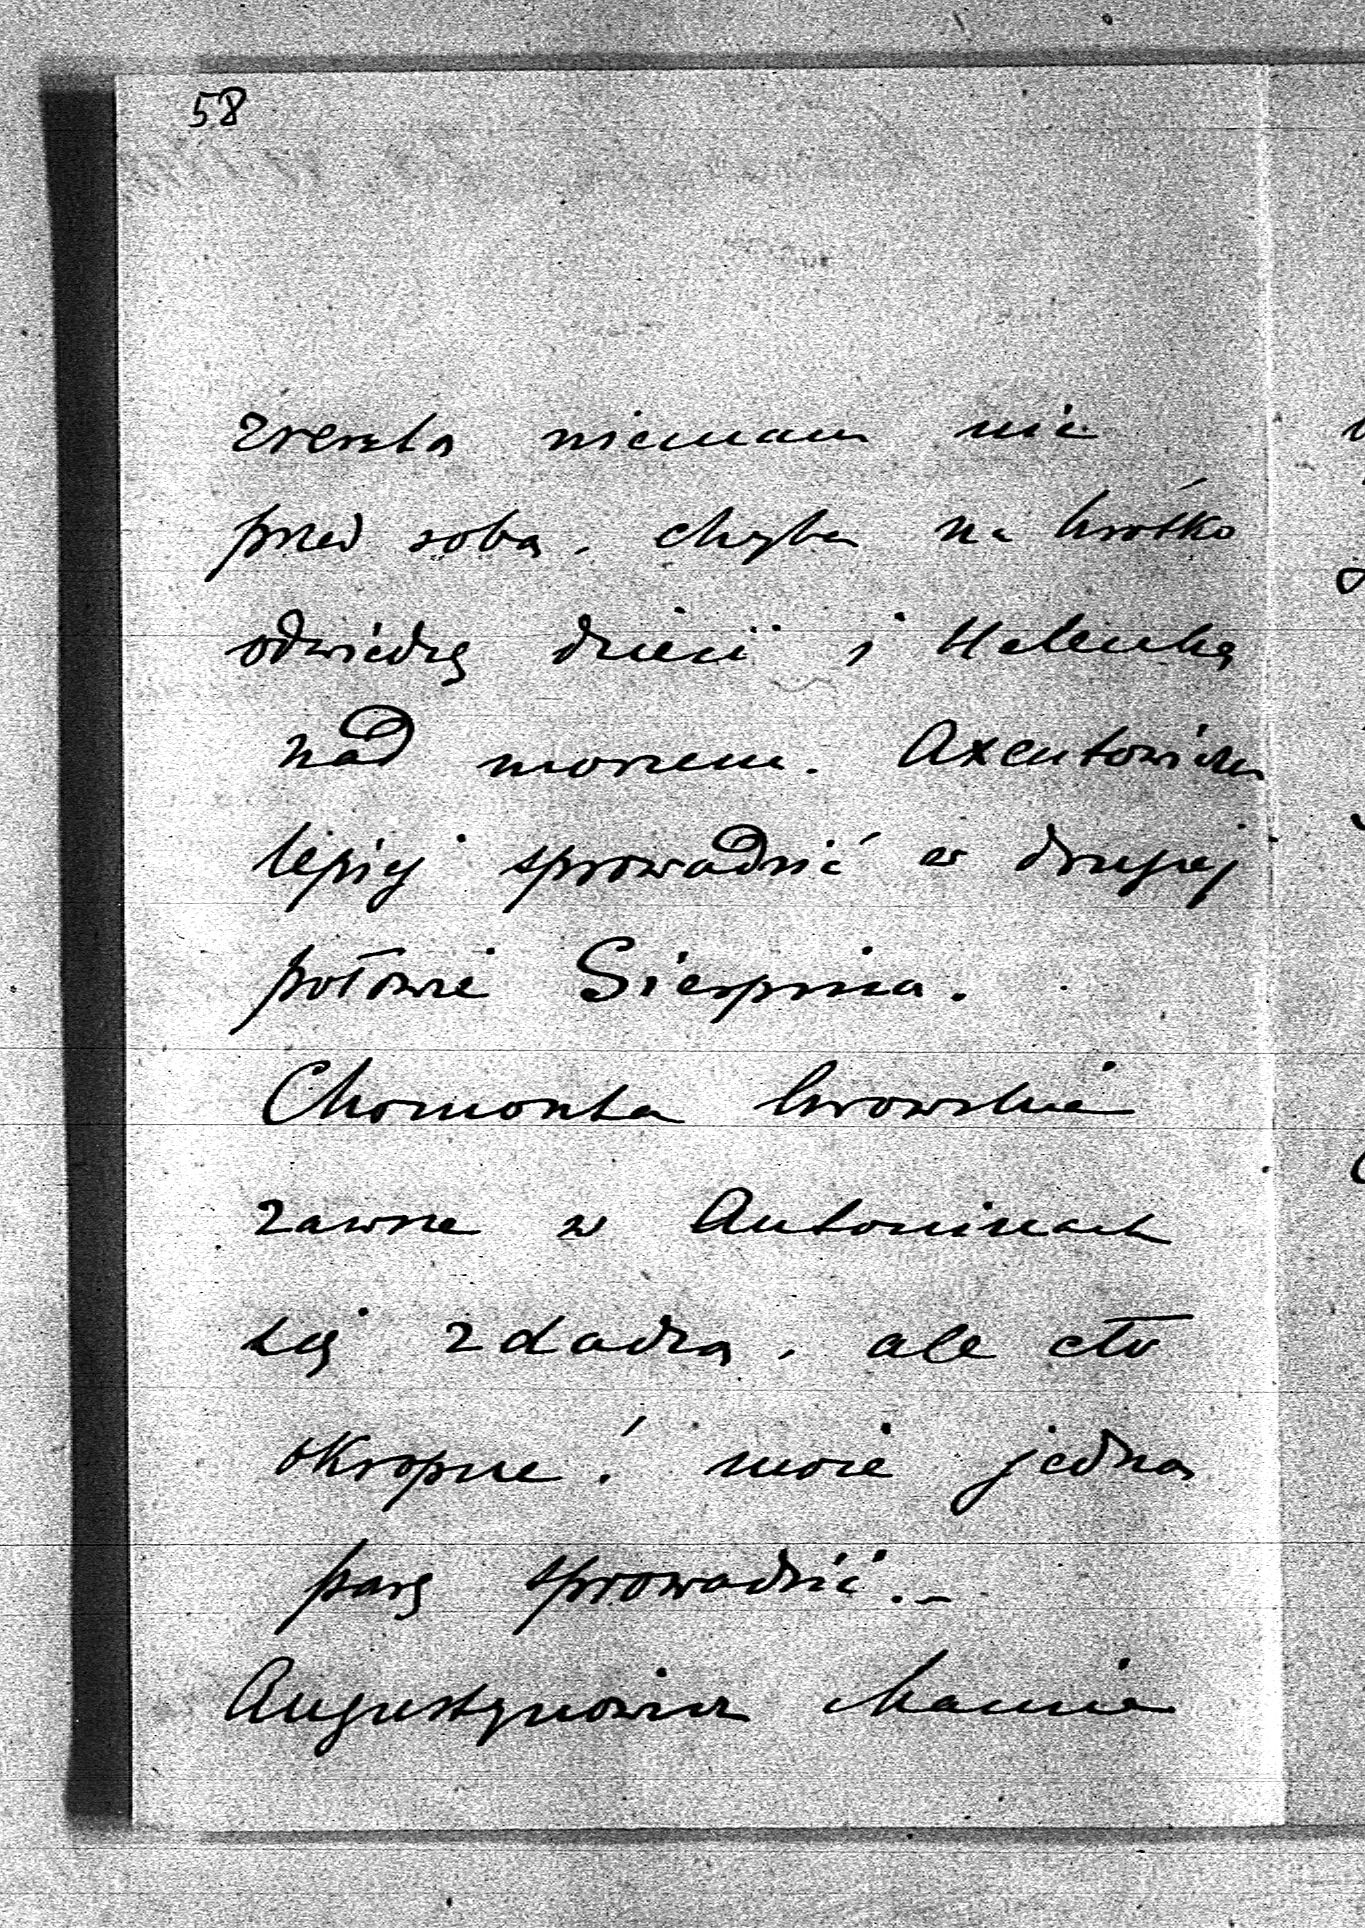 58
zresztą niemam nic
przed sobą, chyba na krótko
odwiedzę dzieci i Helenkę
nad morzem. Axentowicza
lepiej sprowadzić w drugiej
połowie Sierpnia.
Chomonta lwowskie
zawsze w Antoninach
się zdadzą, ale cło
okropne! może jedną
parę sprowadzić. –
Augustynowicz Mamie